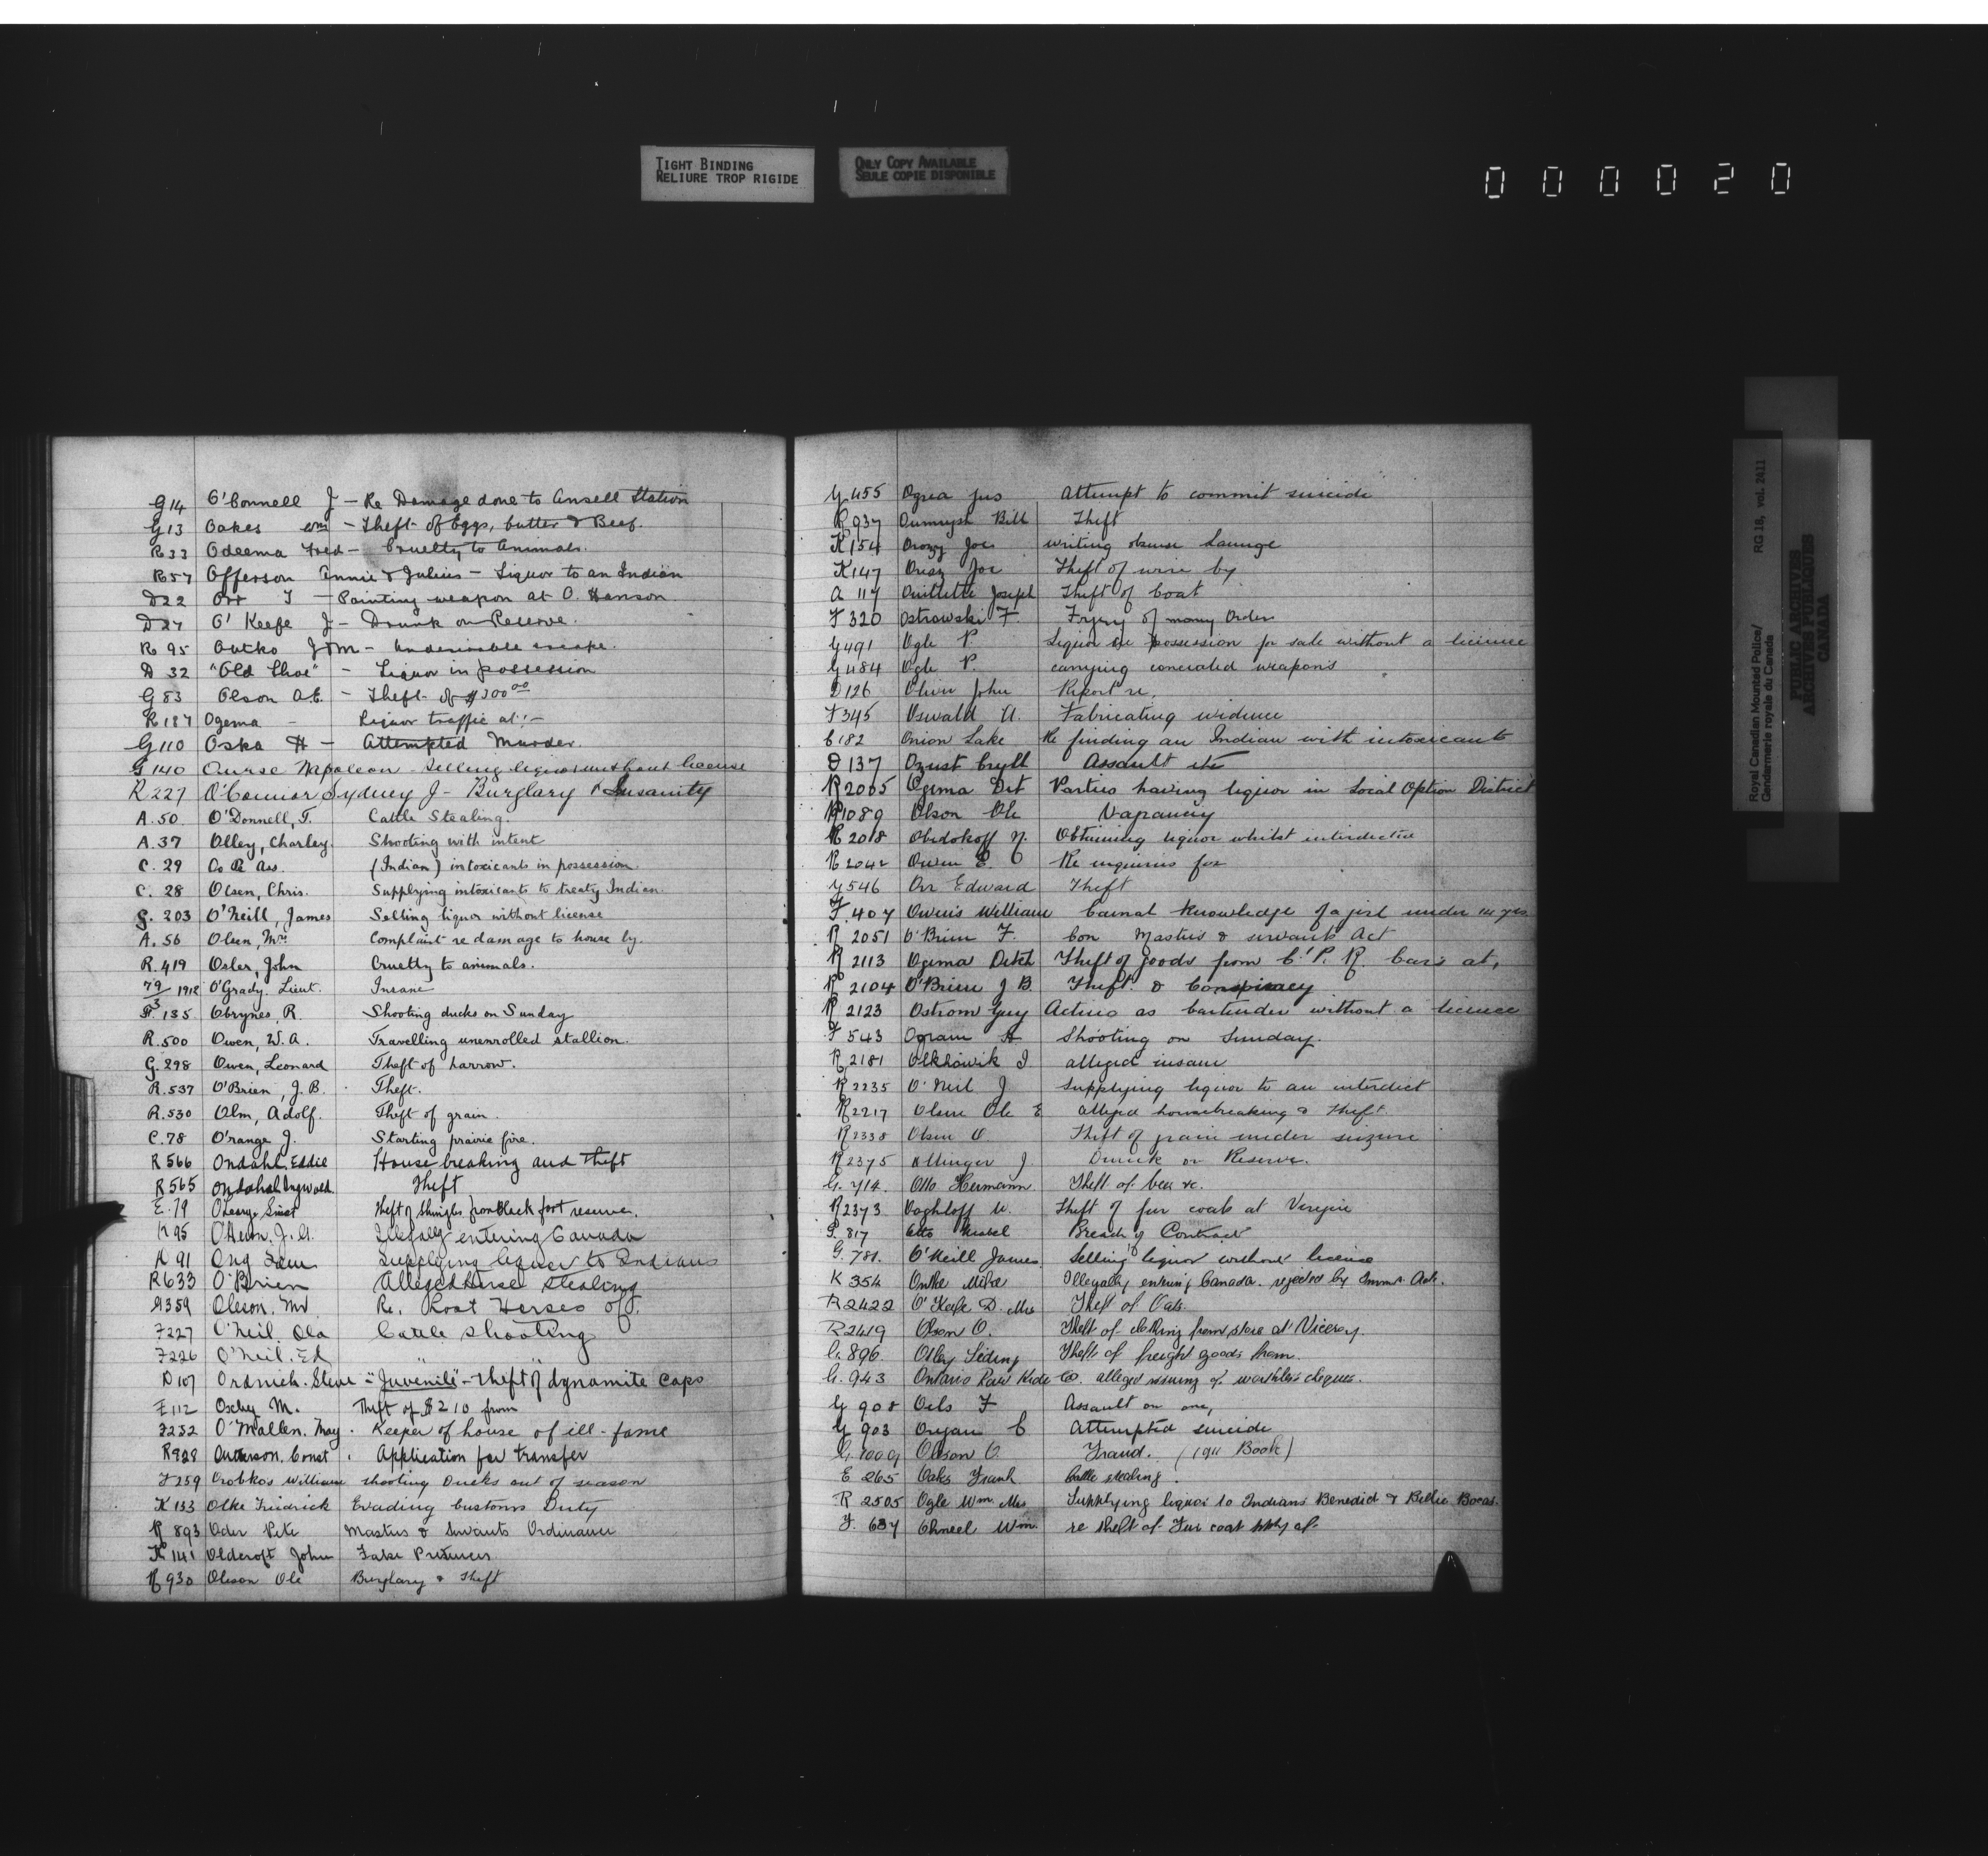 TIGHT BINDING
RELIURE TROP RIGIDE
ONLY COPY AVAILABLE
SEULE COPIE DISPONIBLE
0 0 0 0 2 0
G14 O'Connell J - Re Damage done to Ansell Station
G13 Oakes Wm - Theft of Eggs, butter & Beef.
R33 Odeema Fred - Cruelty to Animals.
R57 Offerson Annie & Julius - Liquor to an Indian
D22 Orr T - Pointing weapon at O. Hanson
D27 O'Keefe J - Drunk on Reserve.
R95 Outko John - Undesirable escape.
D32 "Old Shoe" - Liquor in possession
G83 Olson A.E. - Theft of $200.00
R187 Ogema - Liquor traffic at:-
G110 Oska H - Attempted Murder.
G140 Ourse Napoleon - Selling liquor without license
R227 O'Connor Sydney J - Burglary & Insanity
A.50 O'Donnell, T. Cattle Stealing.
A.37 Olley, Charley. Shooting with intent
C.29 (Indian) intoxicants in possession.
C.28 Olsen, Chris. Supplying intoxicants to treaty Indian.
G.203 O'Neill, James Selling liquor without license
A.56 Olsen, Mrs. Complaint re damage to house by.
R.419 Osler, John Cruelty to animals.
79/3 1912 O'Grady. Lieut. Insane
F.135 Obrynes, R. Shooting ducks on Sunday
R.500 Owen, W.A. Travelling unenrolled stallion.
G.298 Owen, Leonard Theft of harrow.
R.537 O'Brien, J.B. Theft.
R.530 Olm, Adolf. Theft of grain.
C.78 O'range J. Starting prairie fire.
R566 Ondahl Eddie House breaking and Theft
R565 Ondahl Ingwald. Theft
E.79 O'Leary Theft of Shingles from Black foot reserve.
K95 O'Hearn. J.A. Illegally entering Canada
K91 Ong Supplying liquor to Indians
R633 O'Brien Alleged horse stealing
G359 Oleson. Mr Re. Lost Horses of.
F227 O'Neil. Ola Cattle shooting
F226 O'Neil. Ed " "
D107 Ordnich. Steve - "Juvenile" - theft of dynamite caps
E112 Oxley M. Theft of $210 from
F252 O'Mallen. May. Keeper of house of ill-fame
R828 Const. Application for transfer
F259 Orobko's William shooting Ducks out of season
K133 Olke Friedrick Evading Customs Duty
R893 Oder Pete Masters & Servants Ordinance
K141 Oldcroft John False Pretences
R930 Oleson Ole Burglary & Theft
G455 Ogrea Jas Attempt to commit suicide
R937 Bill Theft
K154 Orozy Joe writing obscene
K147 Joe Theft of wire by
A117 Ouillette Joseph Theft of Coat
F320 Ostrowski F. Forgery of money Order
G491 Ogle P. Liquor in possession for sale without a licence
G484 Ogle P. carrying concealed weapons
D126 Oliver John Report re.
F345 Oswald U. Fabricating evidence
C182 Onion Lake Re finding an Indian with intoxicants
D137 Ozust Cyll Assault etc
R2005 Ogema Det Parties having liquor in Local Option District
R1089 Olson Ole Vagrancy
R2018 Obedokoff N. Obtaining liquor whilst interdicted
R2042 Owen E. Re inquiries for
G546 Orr Edward Theft
F.407 Owens William Carnal knowledge of a girl under 14 yrs
R2051 O'Brien F. Con Masters & servants Act
R2113 Ogema Detch Theft of goods from C.P.R. Cars at,
R2104 O'Brien J B. Theft & Conspiracy
R2123 Ostrom Guy Acting as bartender without a licence
F543 Ogram A Shooting on Sunday.
R2181 Olkhowik I alleged insane
R2235 O'Neil J Supplying liquor to an interdict
R2217 Olsen Ole E alleged housebreaking & theft.
R2338 Olsen O. Theft of grain under seizure
R2375 Ollinger J. Drunk on Reserve.
G.714. Otto Hermann Theft of beer &c.
R2373 W. Theft of fur coat at Veregin
P.817 Otto Breach of Contract
G.781. O'Neill James. Selling liquor without licence
K354 Onthe Mike Illegally entering Canada. rejected by Immn. Act.
R2422 O'Keefe D. Mrs Theft of Oats.
R2419 Olson O. Theft of clothing from store at Viceroy.
G.896. Otley Siding Theft of freight goods from.
G.943 Ontario Raw Hide Co. alleged issuing of worthless cheques.
G908 Oels F Assault on one,
G903 C Attempted suicide
G.1009 Olsson O. Fraud. (1911 Book)
E265 Oaks Frank Cattle stealing.
R2505 Ogle Wm. Mrs Supplying liquor to Indians Benedict & Bellie Bocas.
F.637 Ohneel Wm. re theft of Fur coat ppty of
Royal Canadian Mounted Police/ RG 18, vol. 2411
Gendarmerie royale du Canada
PUBLIC ARCHIVES
ARCHIVES PUBLIQUES
CANADA